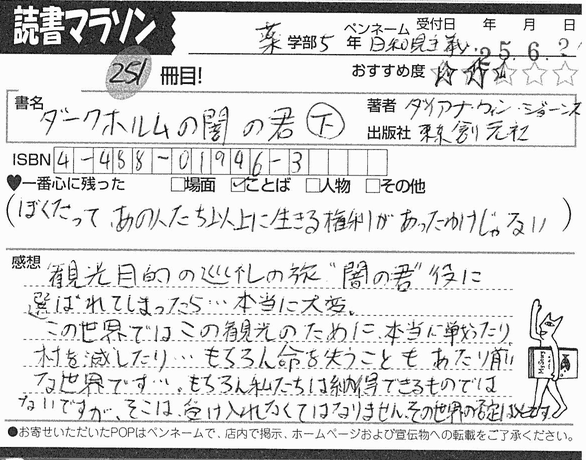 読書マラソン
薬学部5年 ペンネーム 日和見主義 受付日 年 月 日
25.6.2
251冊目! おすすめ度 ☆☆☆☆☆
書名 ダークホルムの闇の君 下
著者 ダイアナ・ウィン・ジョーンズ
出版社 東京創元社
ISBN 4-488-01946-3
♥一番心に残った □場面 ☑ことば □人物 □その他
(ぼくだって、あの人たち以上に生きる権利があったわけじゃない)
感想 観光目的の巡礼の旅"闇の君"役に
選ばれてしまったら…本当に大変。
この世界ではこの観光のために、本当に戦ったり、
村を滅したり…もちろん命を失うこともあたり前
な世界です…。もちろん私たちは納得できるものでは
ないですが、そこは、受け入れなくてはなりません。その世界の
●お寄せいただいたPOPはペンネームで、店内で掲示、ホームページおよび宣伝物への転載をご了承ください。